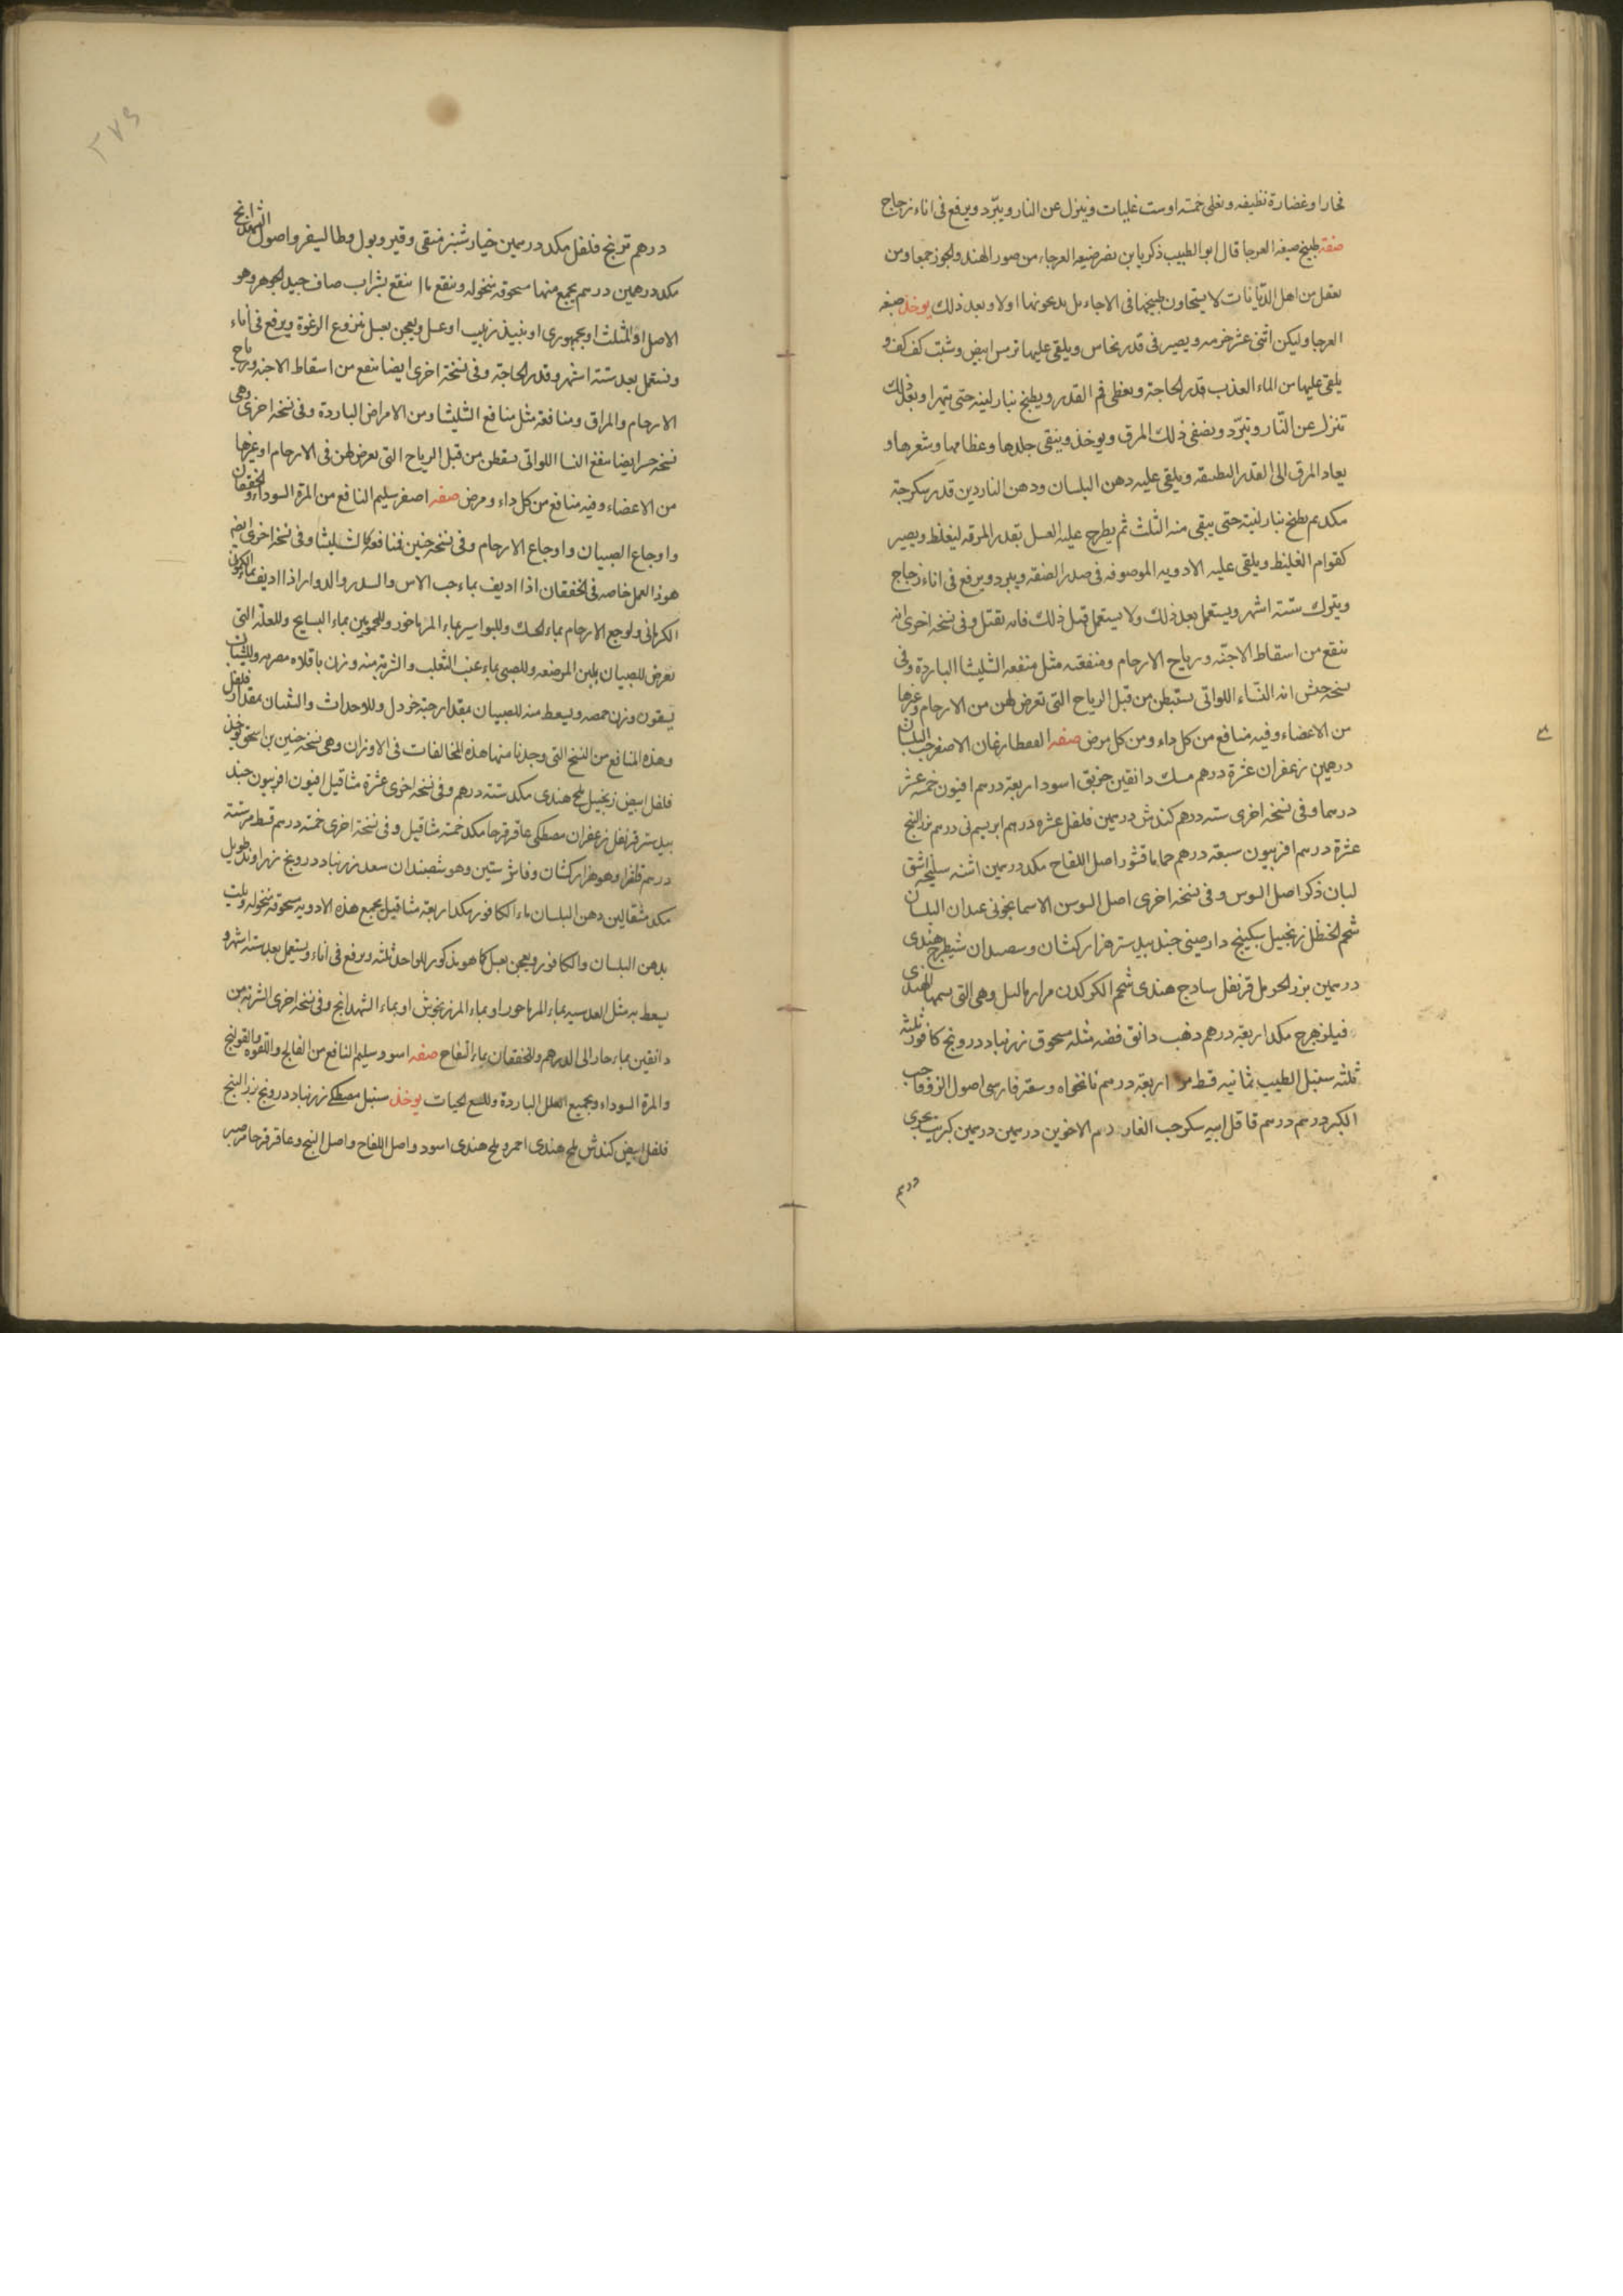 فخار او غضارة نظيفه وتغلى خمسة او ست غليات وينزل عن النار ويبّرد ويرفع فى اناء زجاج
صفة طبيخ ضبعه العرجا قال ابو الطبيب ذكريا بن نصر ضيعه العرجاء من صور الهند والخوز جمعا ومن
بعقل من اهل الدّيانات لا يتحاون طبيخها فى الاحاء بل يدبحونها اولا وبعد ذلك يوخذ ضبعه
العرجا وليكن اثنى عشر خرمه ويصير فى قدر نحاس ويلقى عليها ترمس ابيض وشبت كف كف و
يلقى عليها من الماء العذب قدر الحاجة ويغطى فم القدر ويطبخ بنار لينه حتى يتهرا وبعد ذلك
تنزل عن النّار وتبرّد ويصفى ذلك المرق ويوخذ وينقى جلدها وعظامها وشعرها و
يعاد المرق الى القدر النظيفه ويلقى عليه دهن البلسان ودهن الناردين قدر سكرجة
مكد ثم يطبخ بنار لينة حتى يبقى منه الثلث ثم يطرح عليه العسل بقدر المرقه ليغلظ ويصير
كقوام الغليظ ويلقى عليه الادويه الموصوفه فى صدر الصفه ويبرد ويرفع فى اناء زجاج
ويترك ستّة اشهر ويستعمل بعد ذلك ولا يستعمل قبل ذلك فانه يقتل وفى نسخه اخرى انه
ينفع من اسقاط الاجنّه ورياح الارحام ومنفعته مثل منفعه الثليثا الباردة وفى
نسخه حبش انه النّساء اللواتى يستبطن من قبل الرياح التى تعرض لهن من الارحام وغيرها
من الاعضاء وفيه منافع من كل داء ومن كل مرض صفه القفطارغان الاصغر حب البلسان
درهمين زعفران عشرة درهم مسك دانقين خربق اسود اربعة درهم افيون خمسه عشر
درهما وفى نسخه اخرى سته درهم كندش درهمين فلفل عشره درهم ابريسم نى درهم بزر البنج
عشرة درهم افربيون سبعة درهم حماما قشور اصل اللفاح مكد درهمين اشنه سليخه اشق
لبان ذكر اصل السوس وفى نسخه اخرى اصل السوسن الاسمانجونى عيدان البلسان
شحم الحنظل زنجبيل سكبينج دارصينى جندبيدستر هزاركشان وسصبدان شيطرج هندى
درهمين بزر الحرمل قرنفل سادج هندى شحم الكركدن مراره البيل وهى التى يسمها الهندى
فيلزهرج مكد اربعة درهم ذهب دانق فضه مثله مسحوق زرنباد درونج كافور ثلثه
ثلثه سنبل الطيب ثمانيه قسط مر اربعة درهم نانخواه وسعتر فارسى اصول الزوفا حب
الكبر درهم درهم قاقل ابيه سكر حب الغار دم الاخوين درهمين درهمين كبريت بحرى
درهم
درهم ترنج فلفل مكد درهمين خيار شنبر منقى وقير وبول وطاليفر واصول الشهدانج
مكد درهمين درهم يجمع منها مسحوقه منخوله وينقع ما ينقع بشراب صاف جيد الجوهر وهو
الاصل او المثلث او بجمهورى او بنبيذ زبيب او عسل ويعجن بعسل منزوع الرغوة ويرفع فى اناء
وتستعمل بعد ستة اشهر وقدر الحاجة وفى نسخة اخرى ايضا ينفع من اسقاط الاجنه ورياح
الارحام والمراق ومنافعه مثل منافع الثليثا ومن الامراض الباردة وفى نسخه اخرى وهى
نسخه ايضا ينفع النسا اللواتى يسقطن من قبل الرياح التى تعرض لهن فى الارحام او غيرها
من الاعضاء وفيه منافع من كل داء ومرض صفه اصفر سليم النافع من المرة السوداء والخفقان
واوجاع الصبيان واوجاع الارحام وفى نسخه حنين فنافعه كالثليثا وفى نسخه اخرى ايضا
هوذا العمل خاصه فى الخفقان اذا اديف بماء حب الاس والسدر والدوار اذا اديف بماء الكمون
الكرمانى ولوجع الارحام بماء الحسك وللبواسير بماء المرماخور وللمحمومين بماء البسايج وللعلة التى
تعرض للصبيان بلبن المرضعه وللصبى بماء عنب الثعلب والشربة منه وزن باقلاه مصريه وللشبان
يسقون وزن حمصه ويسعط منه للصبيان بمقدار حبّة خردل وللاحداث والشبان بمقدار فلفل
وهذه المنافع من النسخ التى وجدنا منها هذه المخالفات فى الاوزان وهى نسخه حنين بن اسحق يوخذ
فلفل ابيض زنجبيل ملح هندى مكد ستة درهم وفى نسخه اخرى عشرة مثاقيل افيون افربيون جند
بيدستر قرنفل زعفران مصطكى عاقرقرحا مكد خمسة مثاقيل وفى نسخة اخرى خمسة درهم قسط مر ستة
درهم فلفرا وهو هزاركشان وفاشرستين وهو شصبندان سعد زرنباد درونج زراوند طويل
مكد مثقالين دهن البلسان ماء الكافور مكد اربعة مثاقيل يجمع هذه الادويه مسحوقه منخوله ويلت
بدهن البلسان والكافور ويعجن بعسل كما هو مذكور للواحد ثلثه ويرفع فى اناء ويستعمل بعد ستة اشهر و
يسعط به مثل العدسيه بماء المرماحور او بماء المرزنجوش او بماء الشهدانج وفى نسخه اخرى الشربة من
دانقين بماء حار الى الدرهم وللخفقان بماء التفاح صفه اسود سليم النافع من الفالج واللقوه والقولنج
والمرة السوداء وجميع العلل الباردة وللسع الحيات يوخذ سنبل مصطكے زرنباد درونج بزر البنج
فلفل ابيض كندش ملح هندى احمر وملح هندى اسود واصل اللفاح واصل البنج وعاقرقرحا مر صبر